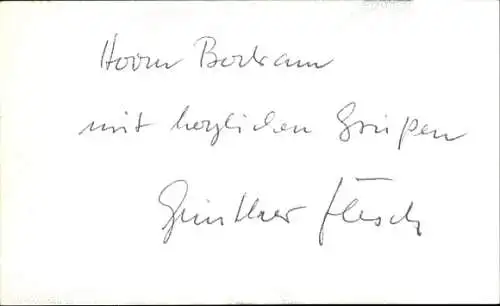 Herrn Bertram
mit herzlichen Grüßen
Günther Flesch